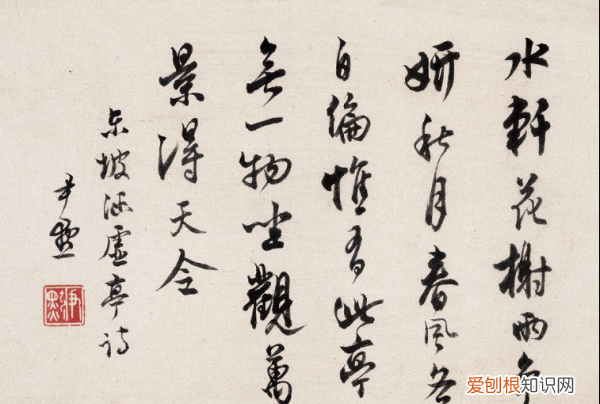 水軒花榭兩爭
妍秋月春風各
自偏惟有此亭
無一物坐觀萬
景得天全
東坡涵虛亭詩
尹默
尹默
爱刨根知识网